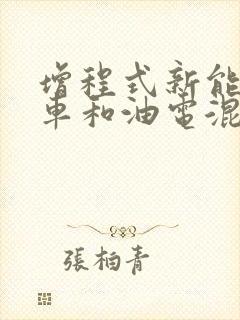 增程式新能
車和油電混
張柏青